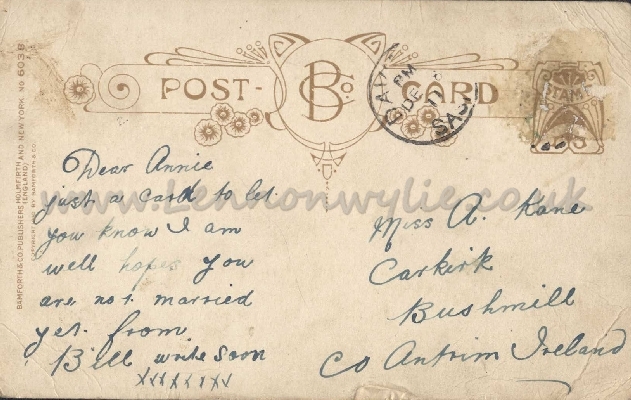 POST-
B Co.
CARD
STAMP
PM
DE
11
SASK
BAMFORTH & CO. PUBLISHERS HOLMFIRTH AND NEW YORK. NO 603 B
(ENGLAND)
COPYRIGHT BY BAMFORTH & CO.
www.Lennonwylie.co.uk
Dear Annie
just a card to let
you know I am
well hopes you
are not married
yet from
Bill write soon
xxxxxxxx
Miss A. Kane
Carkirk
Bushmill
Co Antrim Ireland